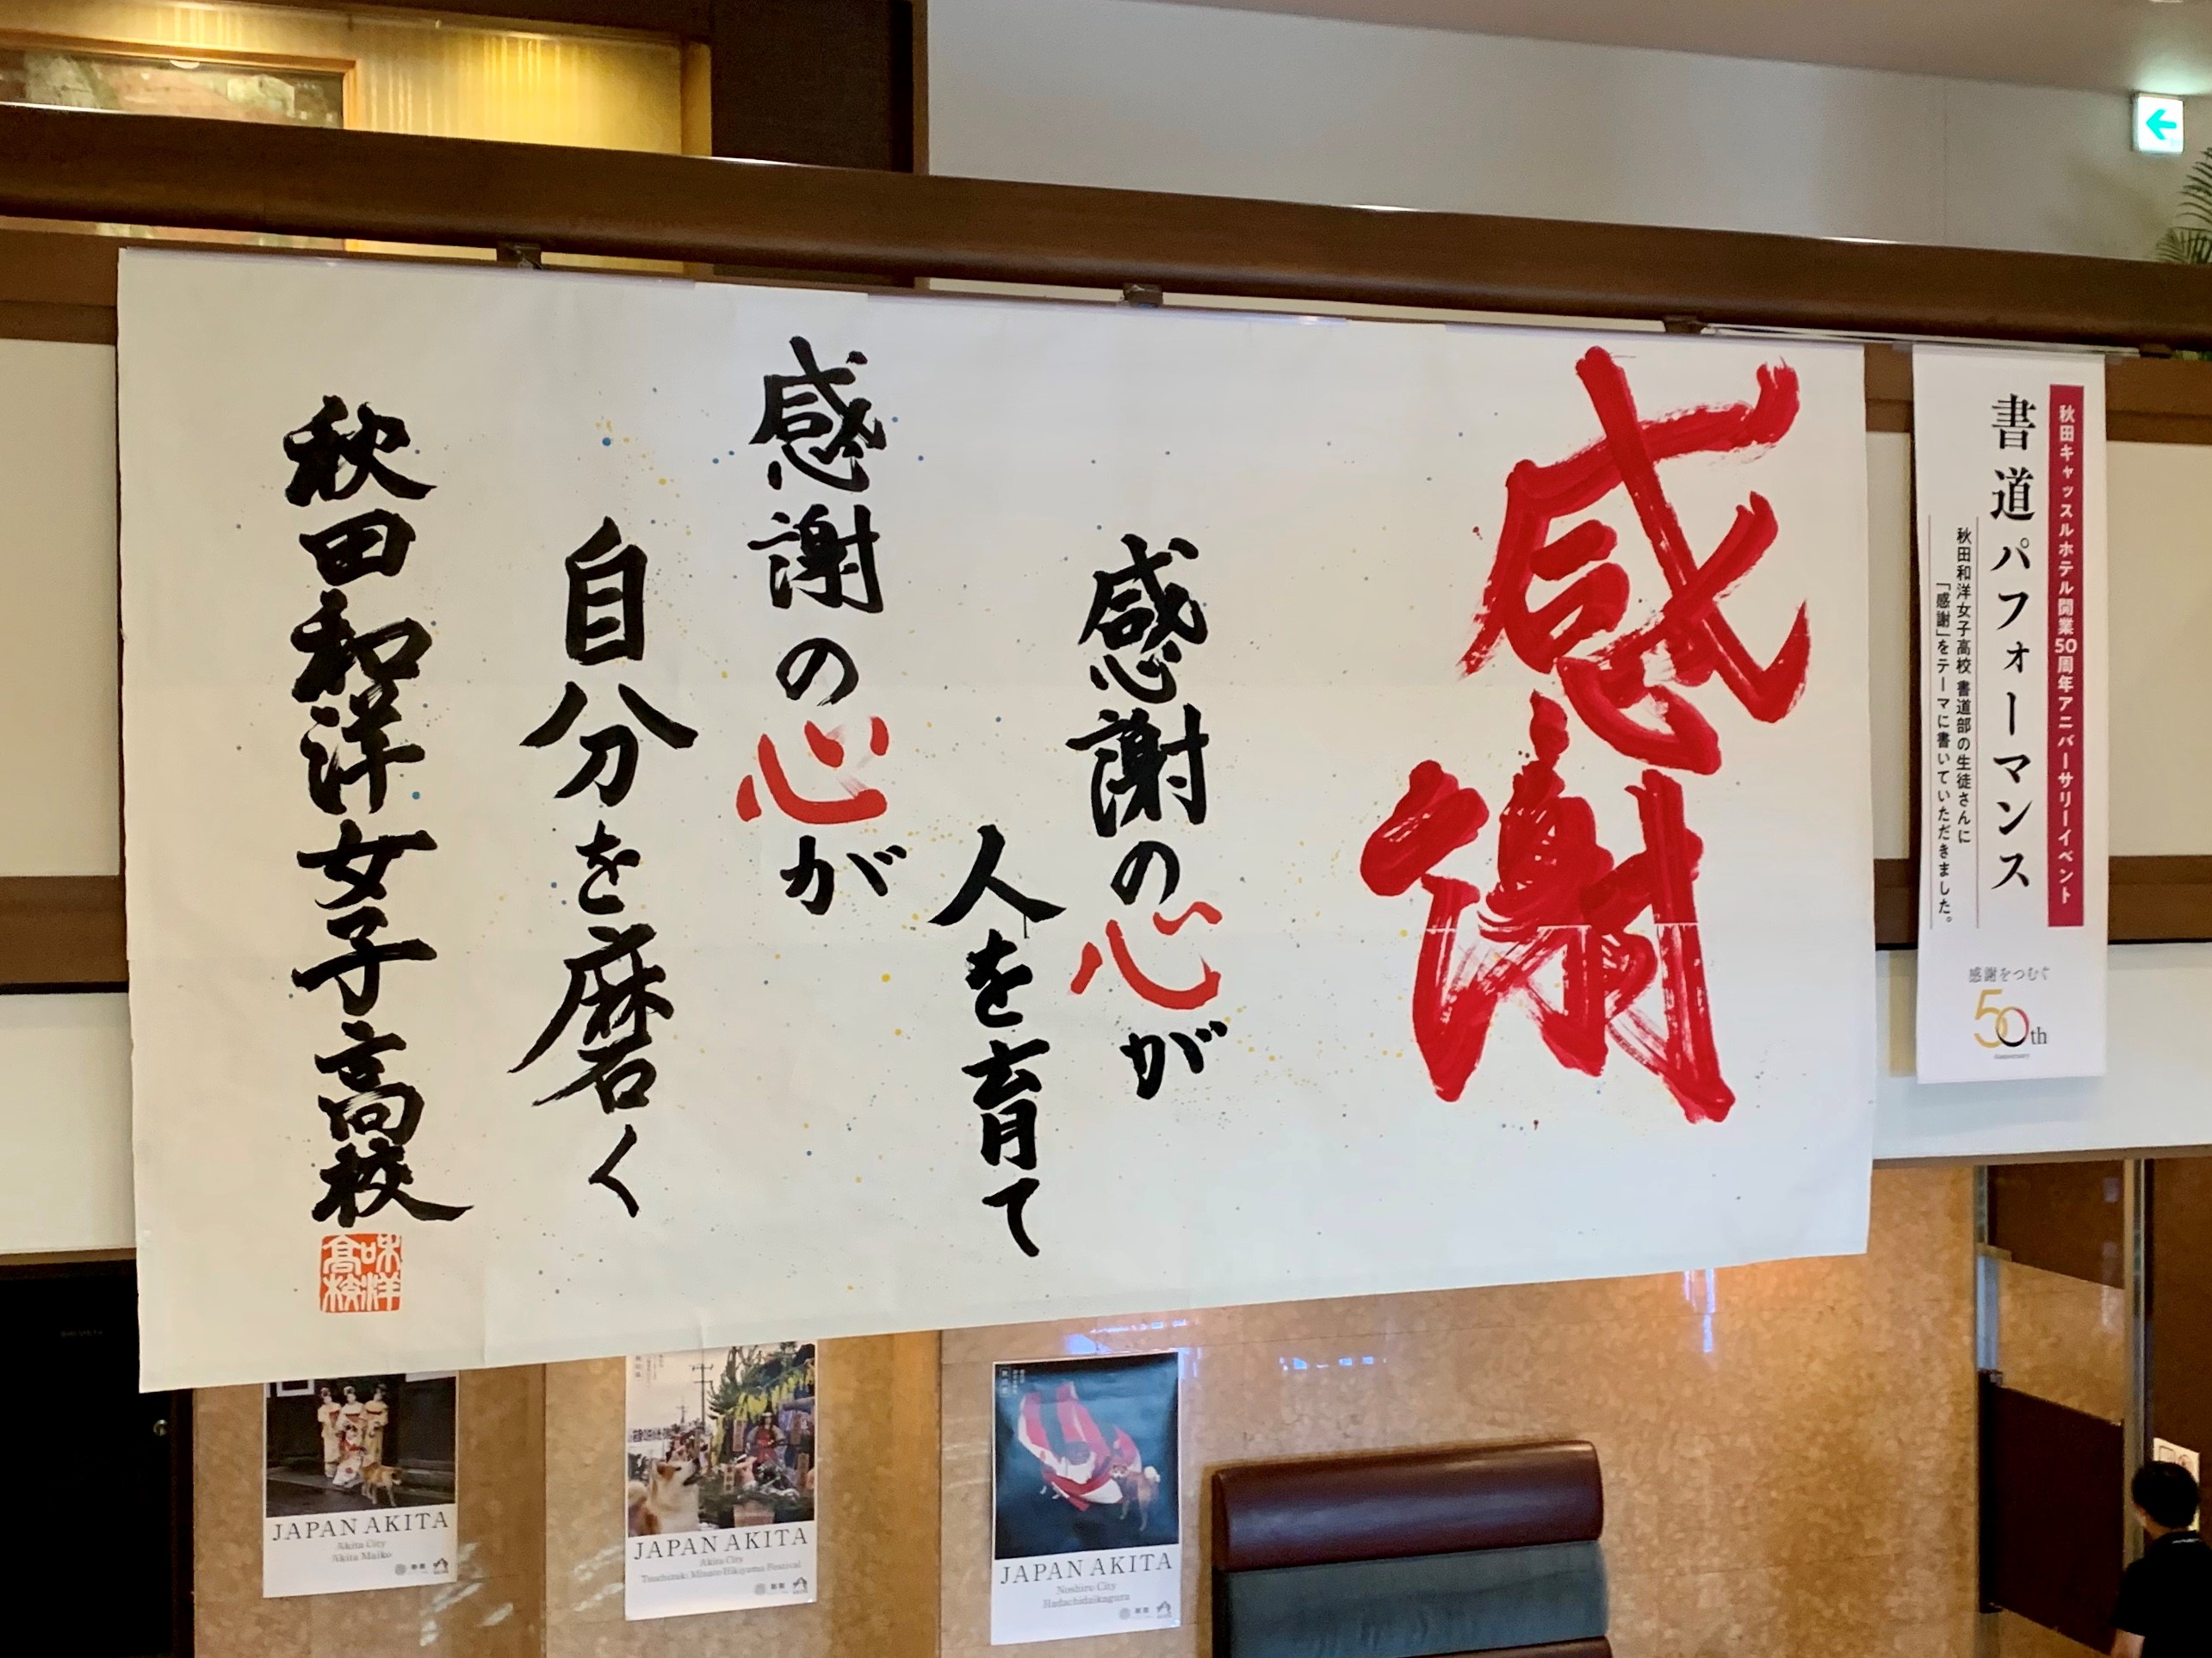 感謝
感謝の心が
人を育て
感謝の心が
自分を磨く
秋田和洋女子高校
秋田キャッスルホテル開業50周年アニバーサリーイベント
書道パフォーマンス
秋田和洋女子高校 書道部の生徒さんに
「感謝」をテーマに書いていただきました。
感謝をつむぐ
50th
Anniversary
JAPAN AKITA
Akita City
Akita Maiko
JAPAN AKITA
Akita City
Tsuchizaki Minato Hikiyama Festival
JAPAN AKITA
Noshiro City